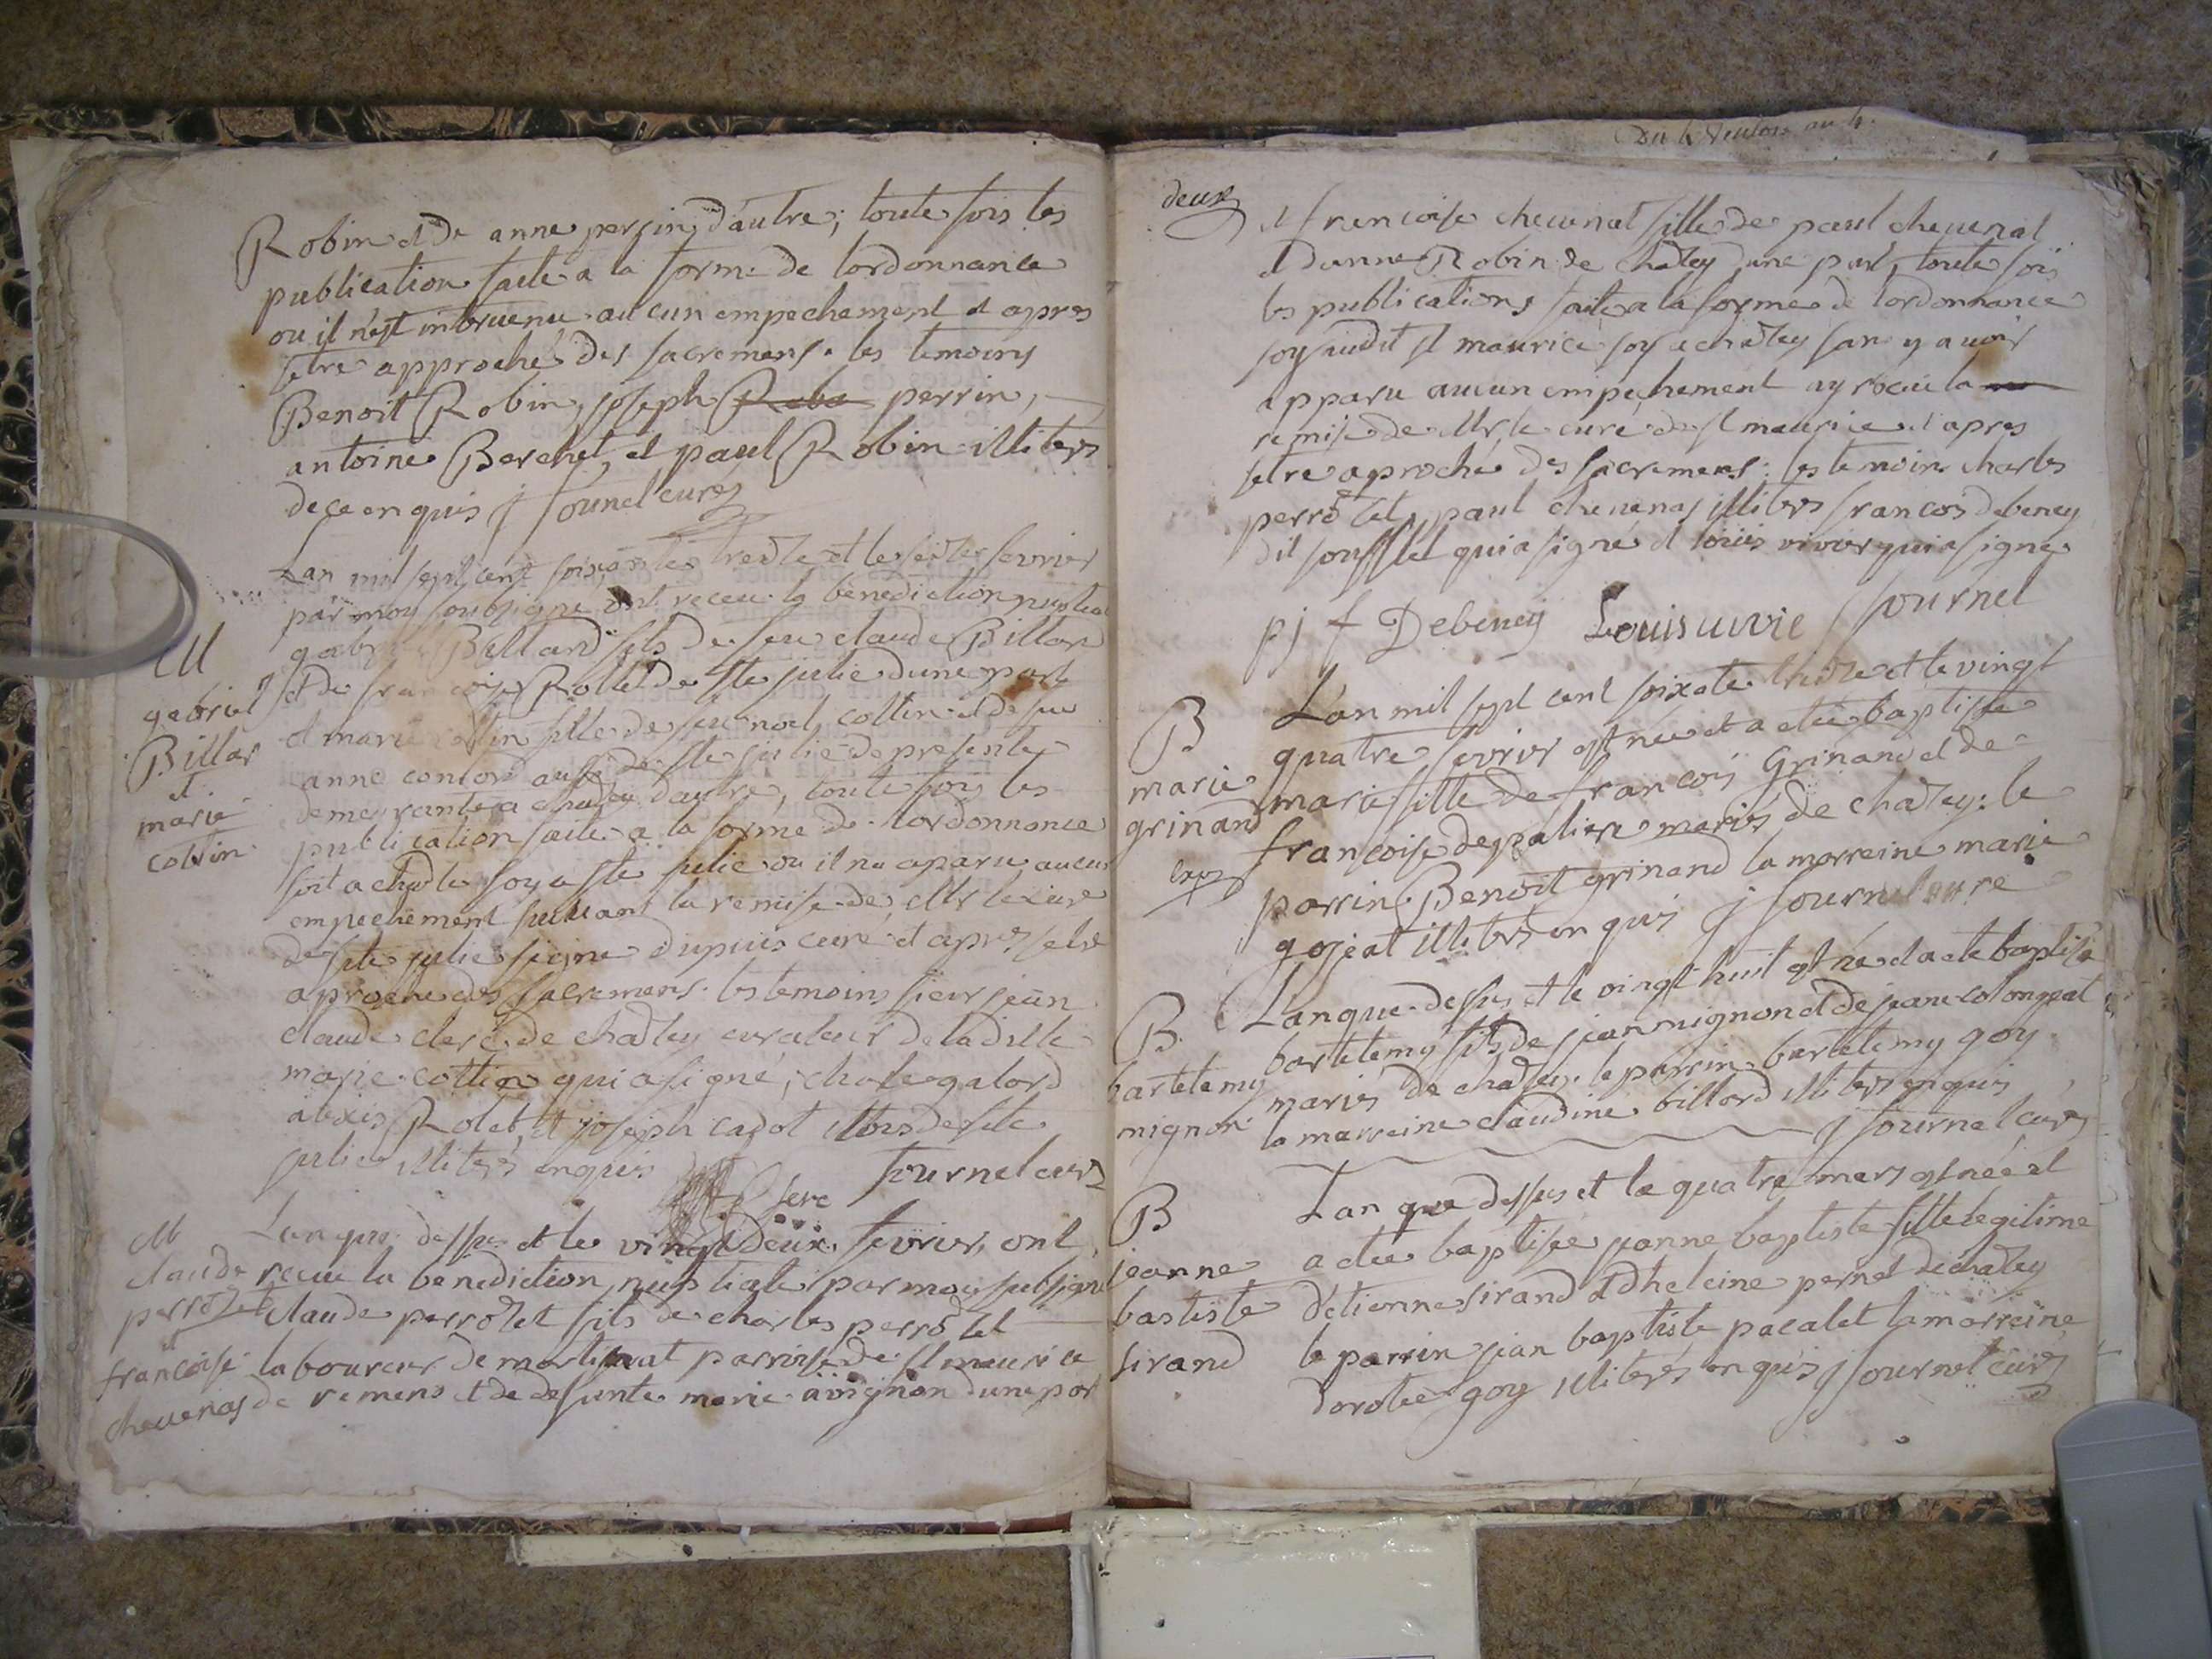 Robin et de anne perrin d'autre; toute fois les
publication faite a la forme de lordonnance
ou il n'est intervenu aucun empechement et apres
setre approché des sacremens. les temoins
Benoit Robin, joseph perrin,
antoine Berchet, et paul Robin illiters
de ce enquis j fournel curé
Lan mil sept cent soixante treize et le seize fevrier
par moy soussigne ont receu la benediction nuptial
Billand fils de feu claude Billan
et de francoise Rollet de ste julie dune part
et marie cottin fille de feu noel cottin et de feu
anne aussi de ste julie de presente
demeurante a chazey d'autre, toute fois les
publication faite a la forme de lordonnance
soit a chazey soy a ste julie ou il na aparu aucun
empechement suivant la remise de Mr le curé
de ste julie signe dupuis curé et apres setre
aproché des sacremens. les temoins sieur jean
claude clerc de chazey curateur de ladille
marie cottin qui a signé, charle galord
alexis Rolet, et joseph cadot tous de ste
julie illiters enquis
Clerc fournel curé
M
gabriel
Billar
et
marie
cottin
Lan que dessus et le vingt deux fevrier ont
receu la benediction nuptiale par moy subsigné
claude perrozet fils de charles perrozet
laboureur de marlissiat parroisse de st maurice
de remens et de defunte marie avignon dune par
M
claude
perrozet
et
francoise
chevenas
Du 6 Ventose an 4.
deux
et francoise chevenat fille de paul chevenat
et danne Robin de chazey dune part, toute fois
les publications faite a la forme de lordonnance
soy audit st maurice soy a chazey san y avoir
apparu aucun empechement ay receu la
remise de Mr le curé de st maurice et apres
setre aproché des sacremens: les temoins charles
perrozet, paul chevenas illiters francois debeney
dit soufflet qui a signé et louis vivier qui a signé
p j f Debeney Louis uivie fournel
L'an mil sept cent soixate treize et le vingt
quatre fevrier est née et a eteé baptisée
marie fille de francois Grinand et de
francoise depaliere mariés de chazey: le
parrin Benoit grinand la marreine marie
gojeat illiters enquis j fournel curé
B
marie
grinand
Lan que dessus et le vingt huit est né et a eté baptisé
bartelemy fils de jean mignon et de jeane colongeat
mariés de chazey. le parrin bartelemy goy
la marreine claudine billard illiters enquis
j fournel curé
B
bartelemy
mignon
Lan que dessus et le quatre mars est née et
a eteé baptisée janne baptiste fille legitime
d'etienne sirand et dheleine pernet de chazey
le parrin jean baptiste pacalet la marreine
dorotée goy illiterés enquis j fournel curé
B
jeanne
bastiste
sirand